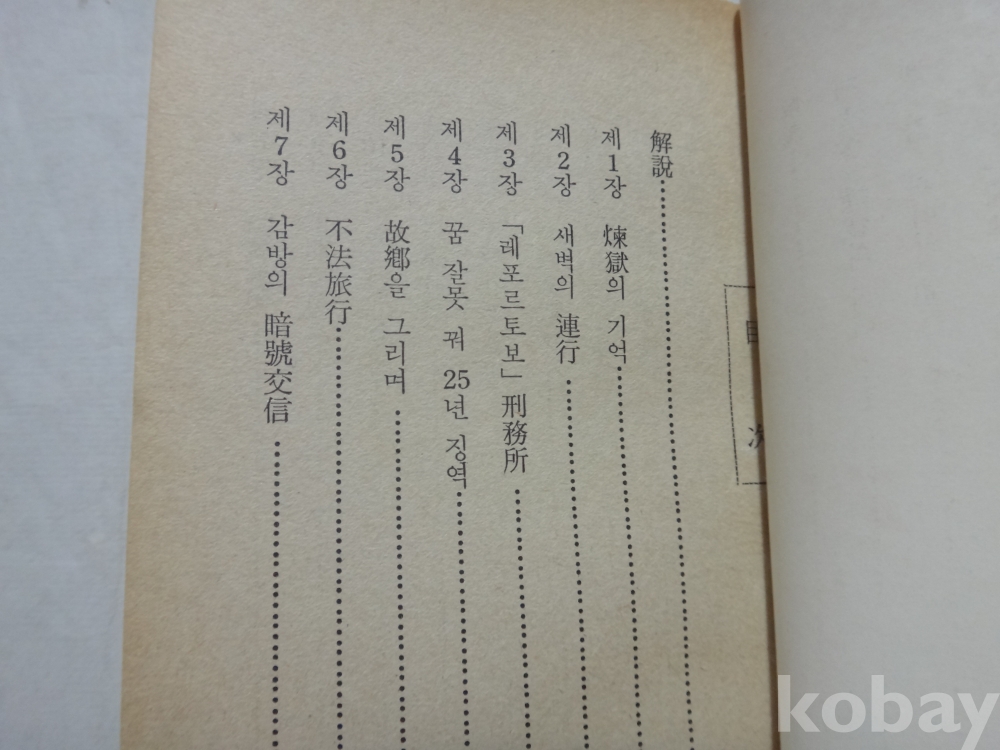 目次
解說
제1장 煉獄의 기억
제2장 새벽의 連行
제3장 「레포르토보」刑務所
제4장 꿈 잘못 꿔 25년 징역
제5장 故鄕을 그리며
제6장 不法旅行
제7장 감방의 暗號交信
kobay